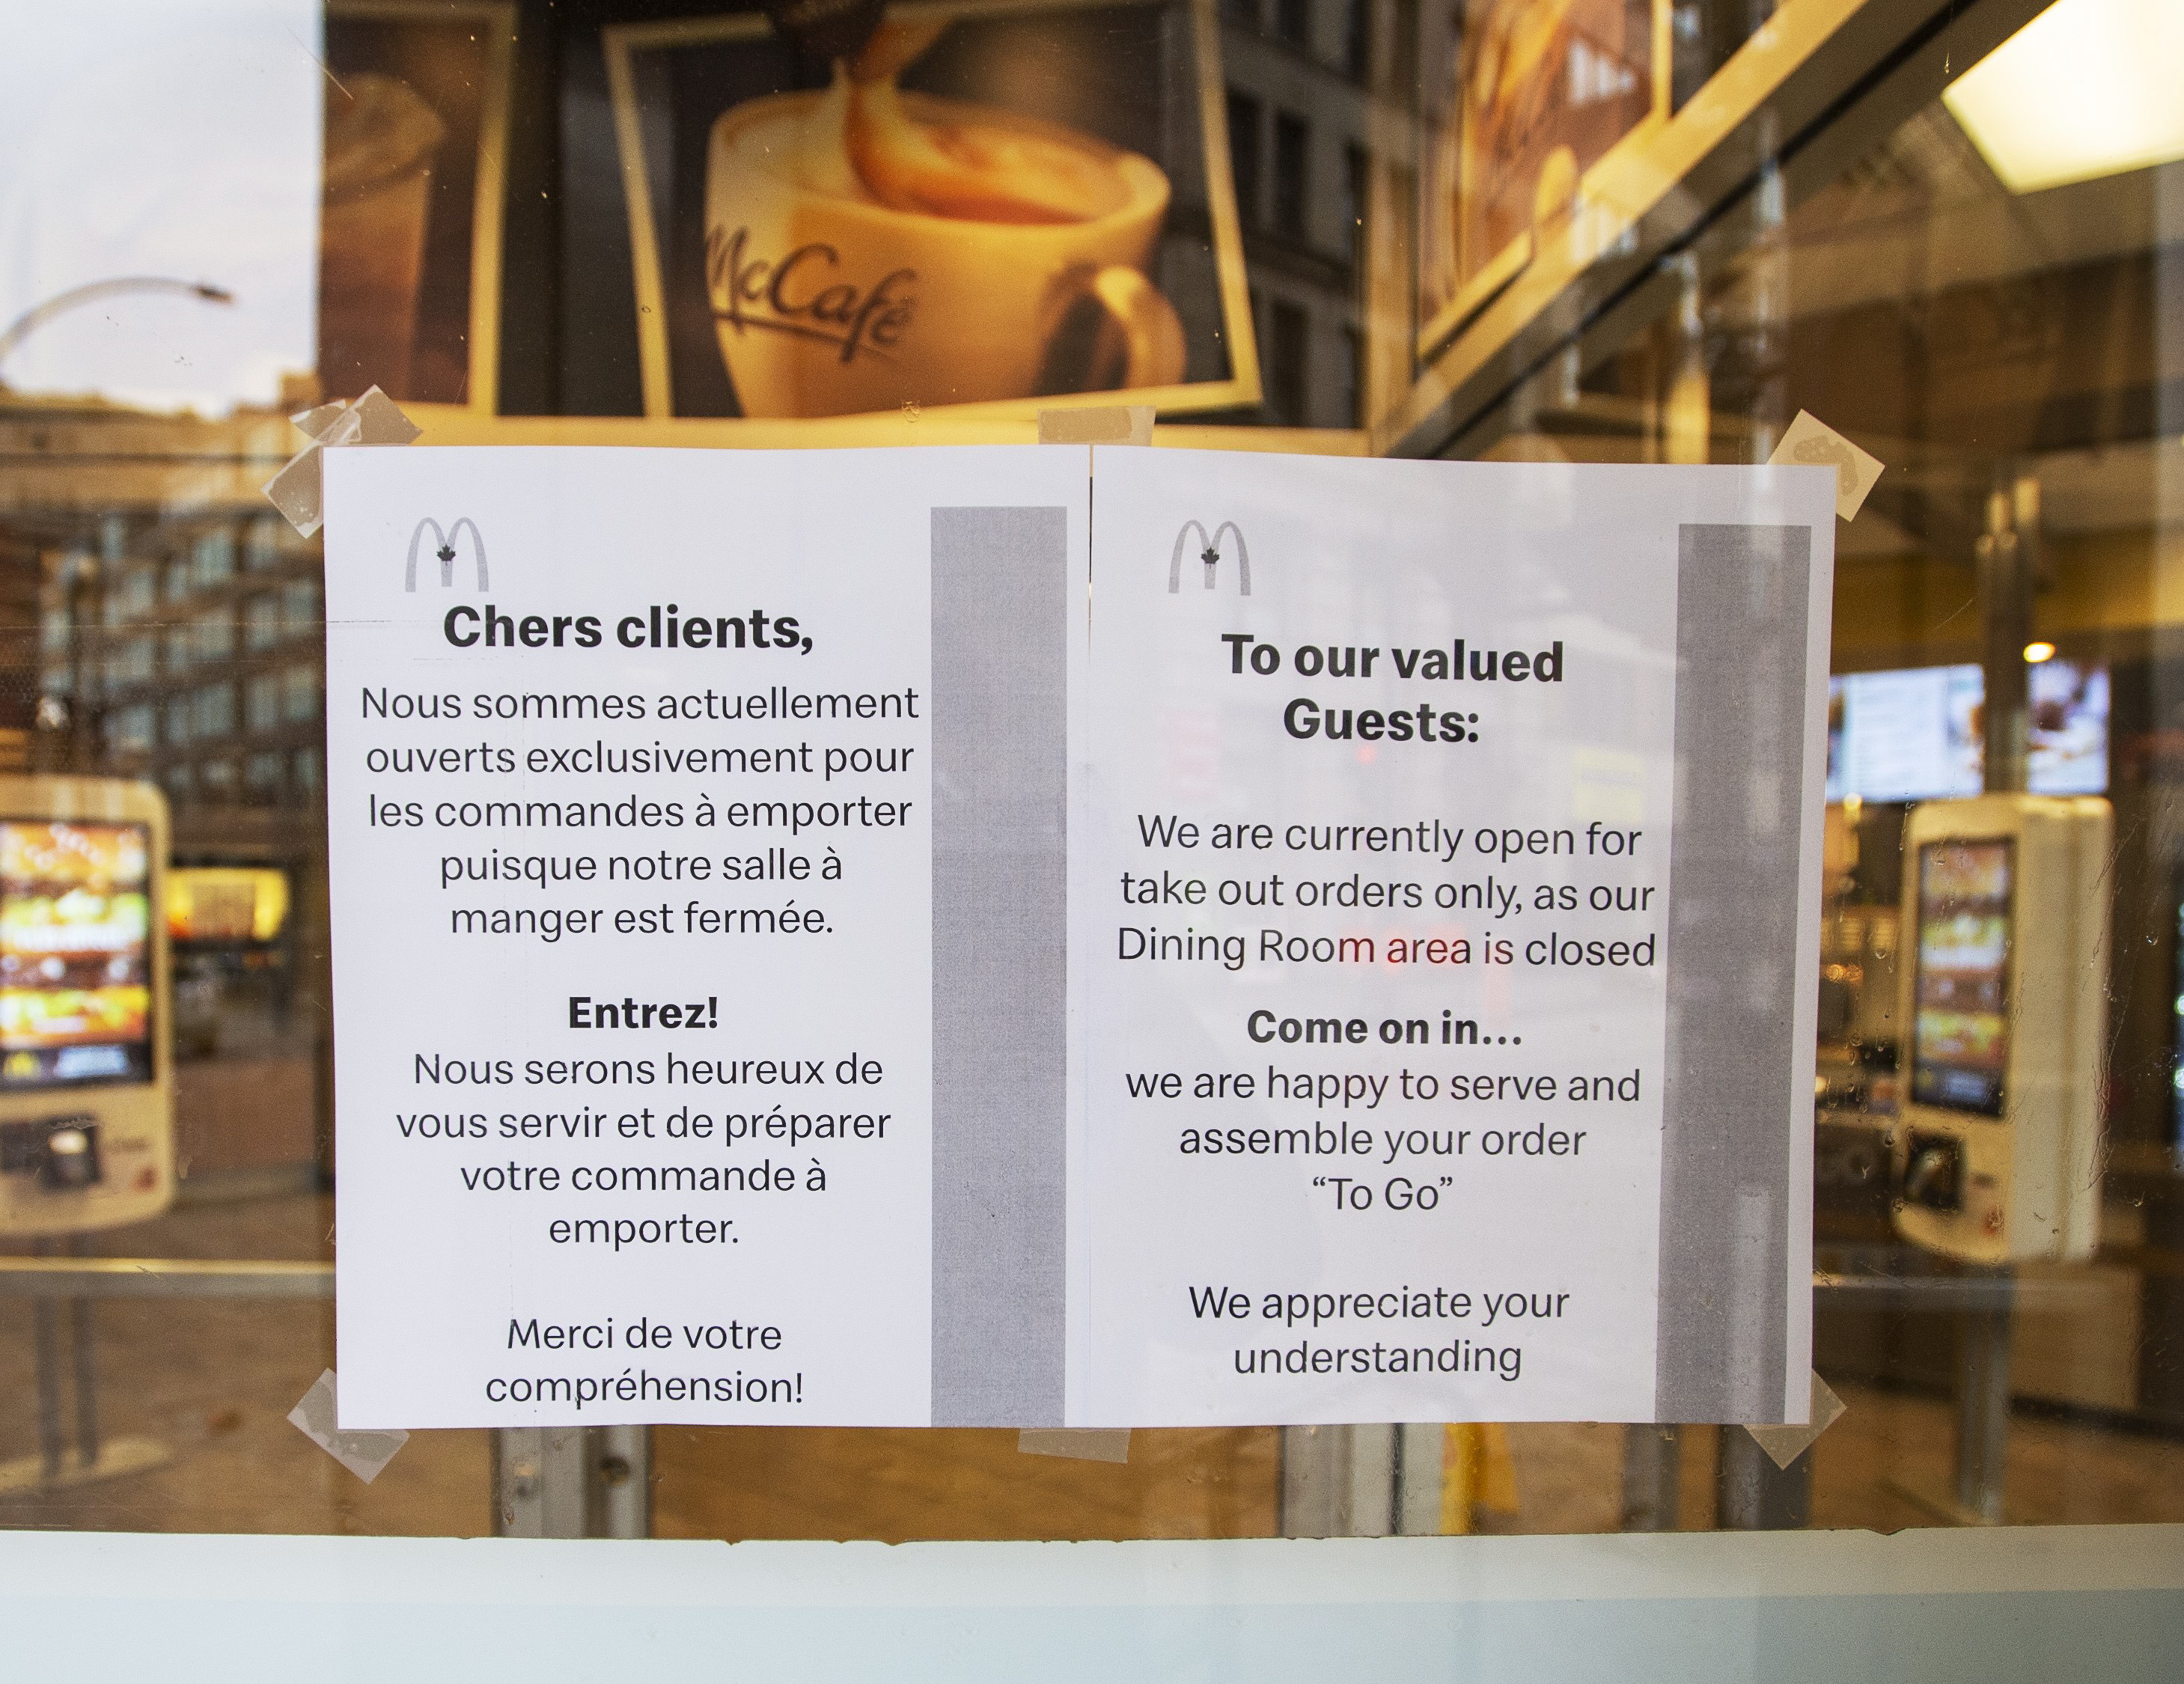 McCafé
Chers clients,
Nous sommes actuellement
ouverts exclusivement pour
les commandes à emporter
puisque notre salle à
manger est fermée.
Entrez!
Nous serons heureux de
vous servir et de préparer
votre commande à
emporter.
Merci de votre
compréhension!
To our valued
Guests:
We are currently open for
take out orders only, as our
Dining Room area is closed
Come on in...
we are happy to serve and
assemble your order
“To Go”
We appreciate your
understanding